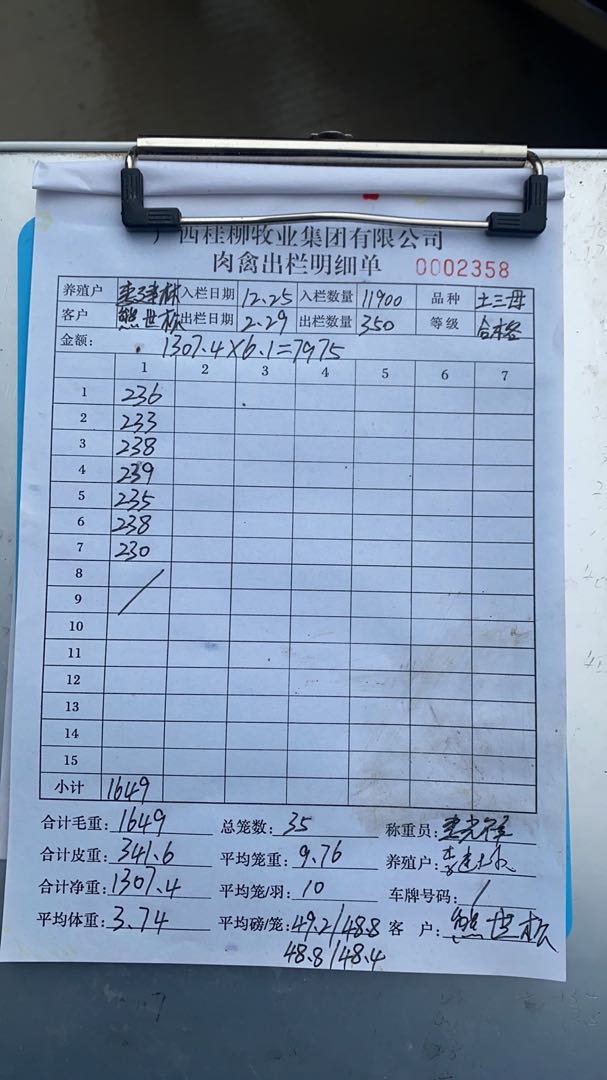 西桂柳牧业集团有限公司
肉禽出栏明细单 0002358
养殖户 入栏日期 12.25 入栏数量 11900 品种 土三母
客户 熊世松 出栏日期 2.29 出栏数量 350 等级 合格
金额: 1307.4×6.1=7975
1 2 3 4 5 6 7
1 236
2 233
3 238
4 239
5 235
6 238
7 230
8
9
10
11
12
13
14
15
小计 1649
合计毛重: 1649 总笼数: 35 称重员:
合计皮重: 341.6 平均笼重: 9.76 养殖户:
合计净重: 1307.4 平均笼/羽: 10 车牌号码: /
平均体重: 3.74 平均磅/笼: 49.2/48.8 客户: 熊世松
48.8/48.4